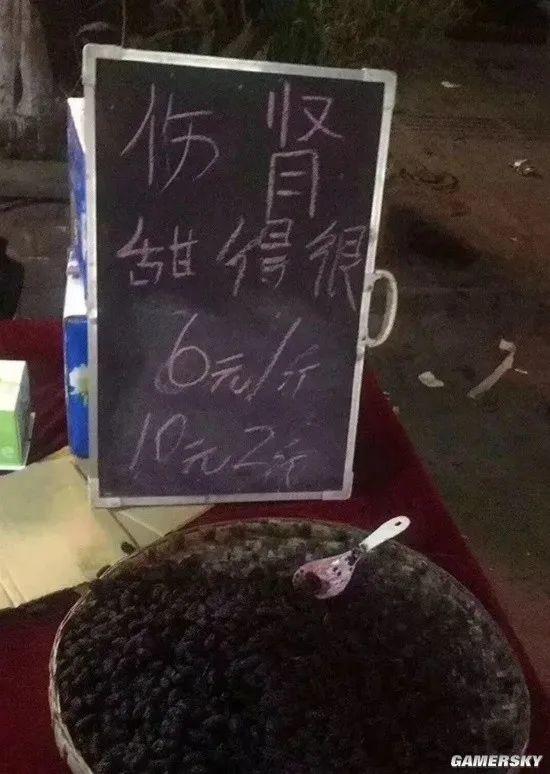 伤肾
甜得很
6元1斤
10元2斤
GAMERSKY